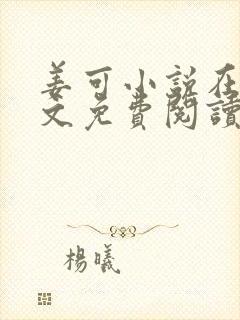 姜可小説在
文免費閱讀
楊曦